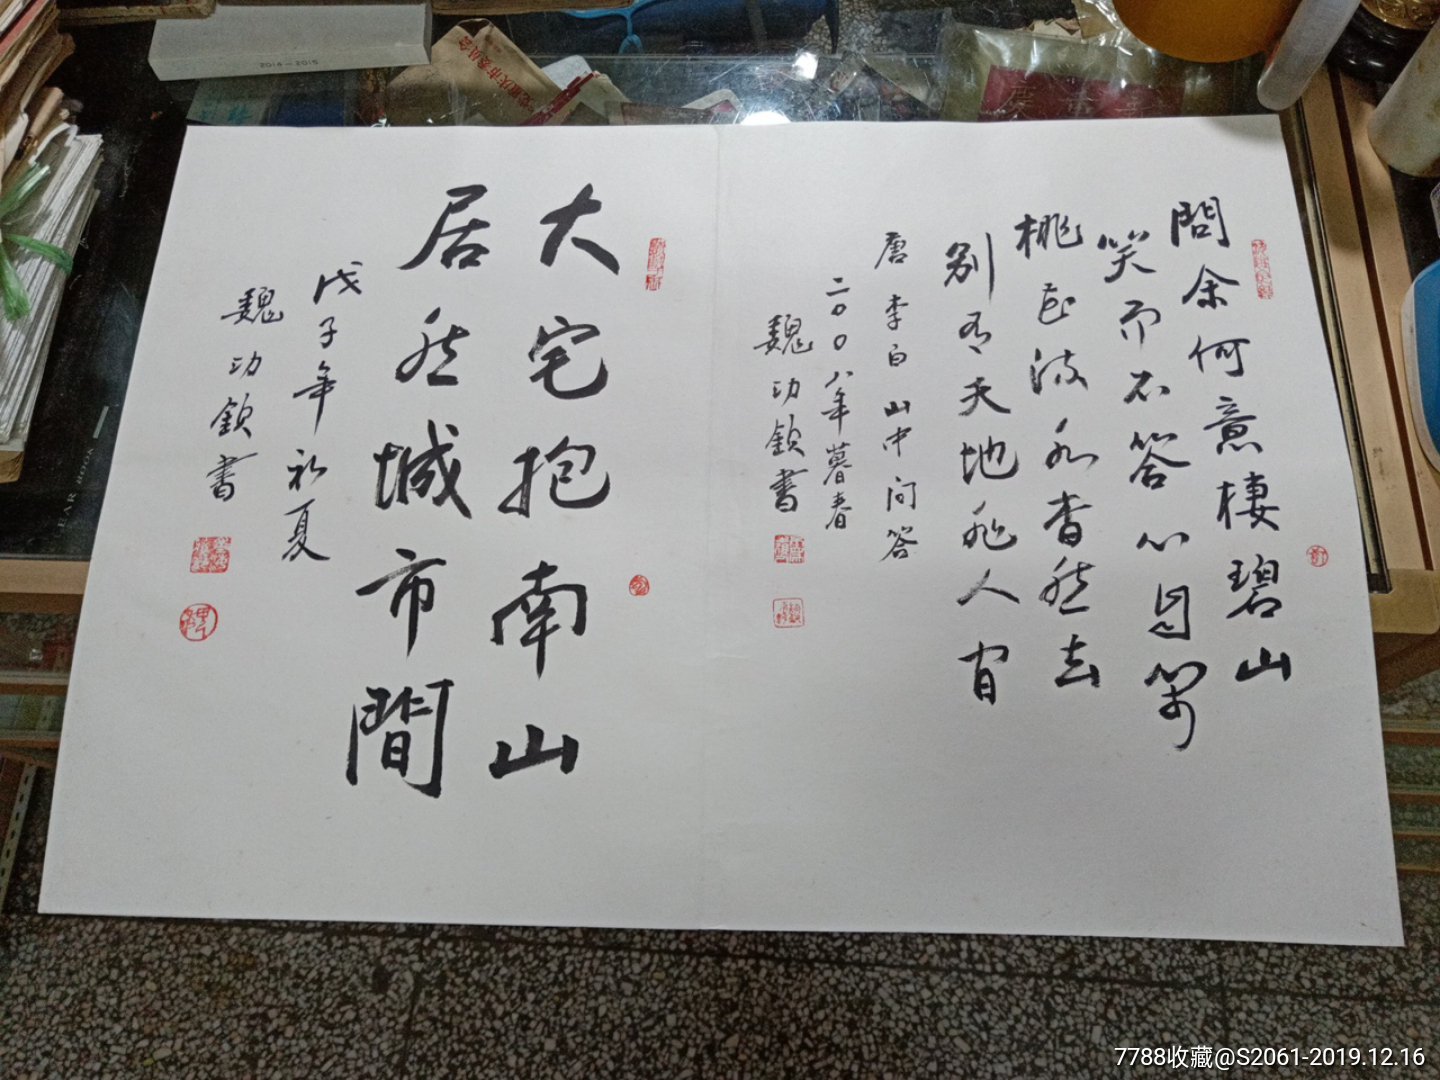 問余何意棲碧山
笑而不答心自閑
桃花流水杳然去
别有天地非人间
唐 李白 山中问答
二〇〇八年暮春
魏功欽書
大宅抱南山
居然城市間
戊子年初夏
魏功欽書
2014-2015
EAR BOOK
7788收藏@S2061-2019.12.16